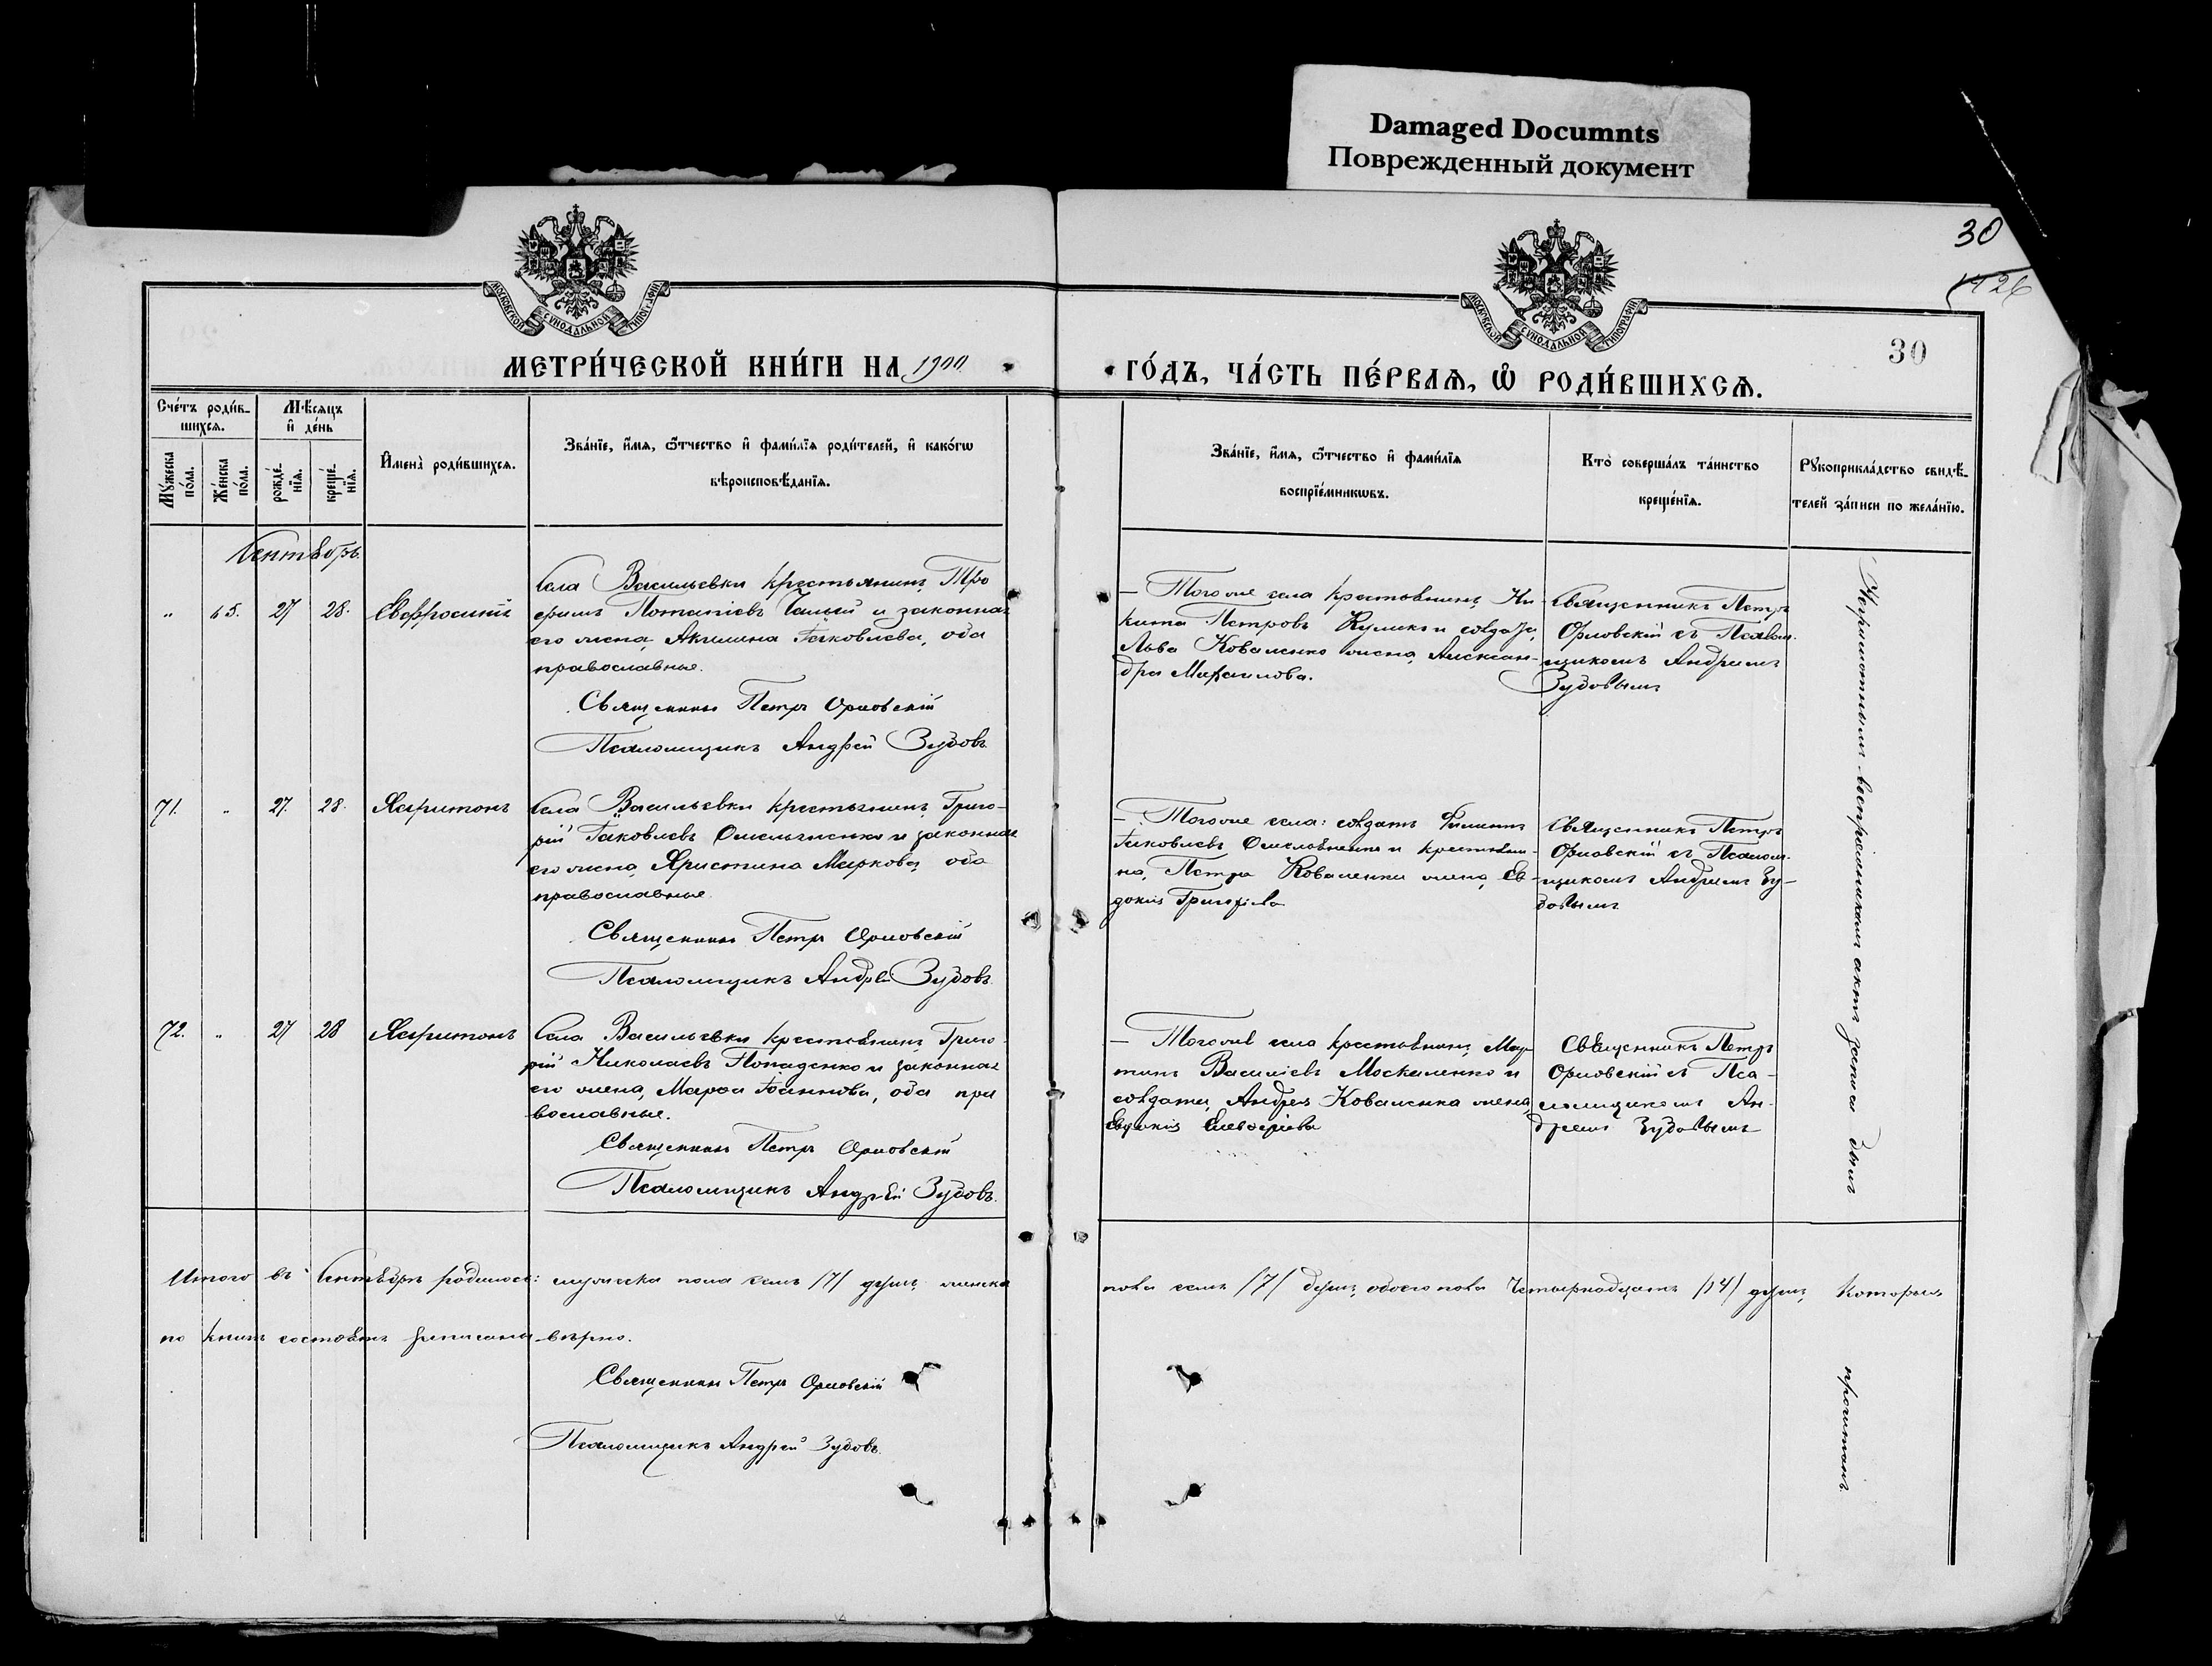 Damaged Documnts
Поврежденный документ
30
26
30
МОСКОВСКОЙ СѴНОДАЛЬНОЙ ТИПОГРАФІИ
МОСКОВСКОЙ СѴНОДАЛЬНОЙ ТИПОГРАФІИ
МЕТРИ́ЧЕСКОЙ КНИ́ГИ НА 1900
ГО́ДЪ, ЧА́СТЬ ПЕ́РВАЯ, Ѡ҆ РОДИ́ВШИХСЯ.
Сче́тъ роди́в-
шихся.
Мѣ́сяцъ
и҆ де́нь
Мꙋ́жеска
по́ла.
Же́нска
по́ла.
рожде́-
нїя.
креще́-
нїя.
И҆мена̀ роди́вшихся.
Зва́нїе, и҆́мя, ѻ҆́тчество и҆ фами́лїя роди́телей, и҆ како́гѡ
вѣроисповѣ́данїя.
Зва́нїе, и҆́мя, ѻ҆́тчество и҆ фами́лїя
воспрїе́мникѡвъ.
Кто̀ соверша́лъ та́инство
креще́нїя.
Рꙋкоприкла́дство свидѣ́-
телей за́писи по жела́нїю.
Сентябрь
" 65. 27 28. Евфросинія
Села Васильевки крестьянинъ Тро
фимъ Потапіевъ Чалый и законная
его жена Акилина Іаковлева, оба
православные.
Священникъ Петръ Орловскій
Псаломщикъ Андрей Зубовъ
— Того же села крестьянинъ Ни-
кита Петровъ Куликъ и солдата
Льва Коваленко жена Алексан-
дра Михаилова.
Священникъ Петръ
Орловскій съ Псалом-
щикомъ Андреемъ
Зубовымъ
71. " 27. 28. Харитонъ
Села Васильевки крестьянинъ Григо-
рій Іаковлевъ Омельченко и законная
его жена Христина Маркова, оба
православные.
Священникъ Петръ Орловскій
Псаломщикъ Андрей Зубовъ
— Того же села: солдатъ Филиппъ
Іаковлевъ Омельченко и крестьяни-
на Петра Коваленки жена Ев-
докія Григорьева
Священникъ Петръ
Орловскій съ Псалом-
щикомъ Андреемъ Зу-
бовымъ
72. " 27 28 Харитонъ
Села Васильевки крестьянинъ Григо-
рій Николаевъ Попаденко и законная
его жена, Марѳа Іоаннова, оба пра
вославные.
Священникъ Петръ Орловскій
Псаломщикъ Андрей Зубовъ.
— Того же села крестьянинъ Мар-
тинъ Василіевъ Москаленко и
солдата Андрея Коваленка жена
Евдокія Елевѳеріева
Священникъ Петръ
Орловскій съ Пса-
ломщикомъ Ан-
дреемъ Зубовымъ
Неграмотнымъ воспріемникамъ актъ записи былъ
прочитанъ
Итого въ Сентябрѣ родилось: мужеска пола семь /7/ душъ, женска
пола семь /7/ душъ, обоего пола четырнадцать /14/ душъ, которые
по книгѣ состоятъ записаны вѣрно.
Священникъ Петръ Орловскій
Псаломщикъ Андрей Зубовъ.